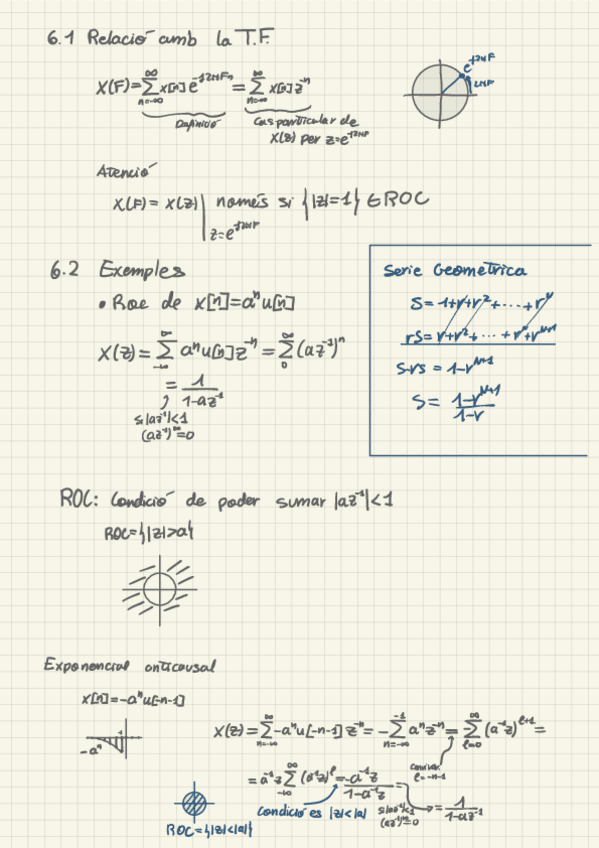 6.1 Relació amb la T.F.
X(F)=∑_{n=-∞}^{∞} x[n] e^{-j2πFn} = ∑_{n=-∞}^{∞} x[n] z^{-n}
e^{j2πF}
2πF
Definició
Cas particular de
X(z) per z=e^{j2πF}
Atenció
X(F) = X(z)|_{z=e^{j2πF}} només si {|z|=1} ∈ ROC
6.2 Exemples
• Roc de x[n]=aⁿu[n]
X(z) = ∑_{-∞}^{∞} aⁿu[n] z^{-n} = ∑_{0}^{∞} (az^{-1})ⁿ
= 1/(1-az^{-1})
si |az^{-1}|<1
(az^{-1})^∞=0
Serie Geometrica
S=1+r+r²+ ··· + r^N
rS= r+r²+ ··· + r^N+r^{N+1}
S-rS = 1-r^{N+1}
S= (1-r^{N+1})/(1-r)
ROC: Condició de poder sumar |az^{-1}|<1
ROC={|z|>a}
Exponencial anticausal
x[n]=-aⁿu[-n-1]
-aⁿ
X(z) = ∑_{n=-∞}^{∞} -aⁿu[-n-1] z^{-n} = -∑_{n=-∞}^{-1} aⁿz^{-n} = ∑_{l=0}^{∞} (a^{-1}z)^{l+1} =
canvi var.
l=-n-1
= a^{-1}z ∑_{-∞}^{∞} (a^{-1}z)^l = (-a^{-1}z)/(1-a^{-1}z) =
= 1/(1-az^{-1})
Condició es |z|<|a|
si |az^{-1}|<1
(az^{-1})^∞=0
ROC={|z|<|a|}